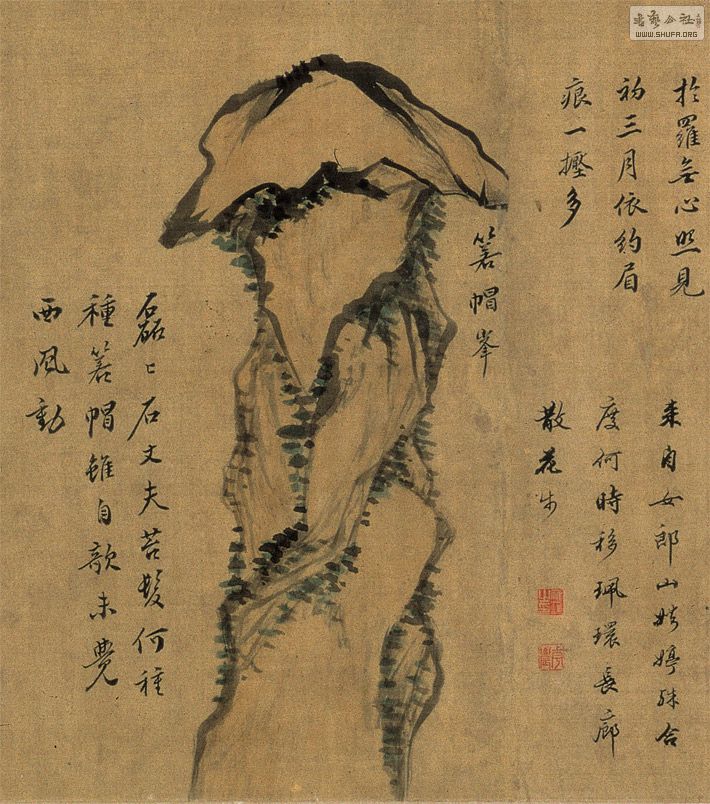 書藝公社
WWW.SHUFA.ORG
於羅無心照見
初三月依約眉
痕一多
来自女郎山娉婷殊合
度何時移珮環長廊
散花步
箬帽峯
磊々石丈夫苔髮何種
種箬帽雖自欹未覺
西風動